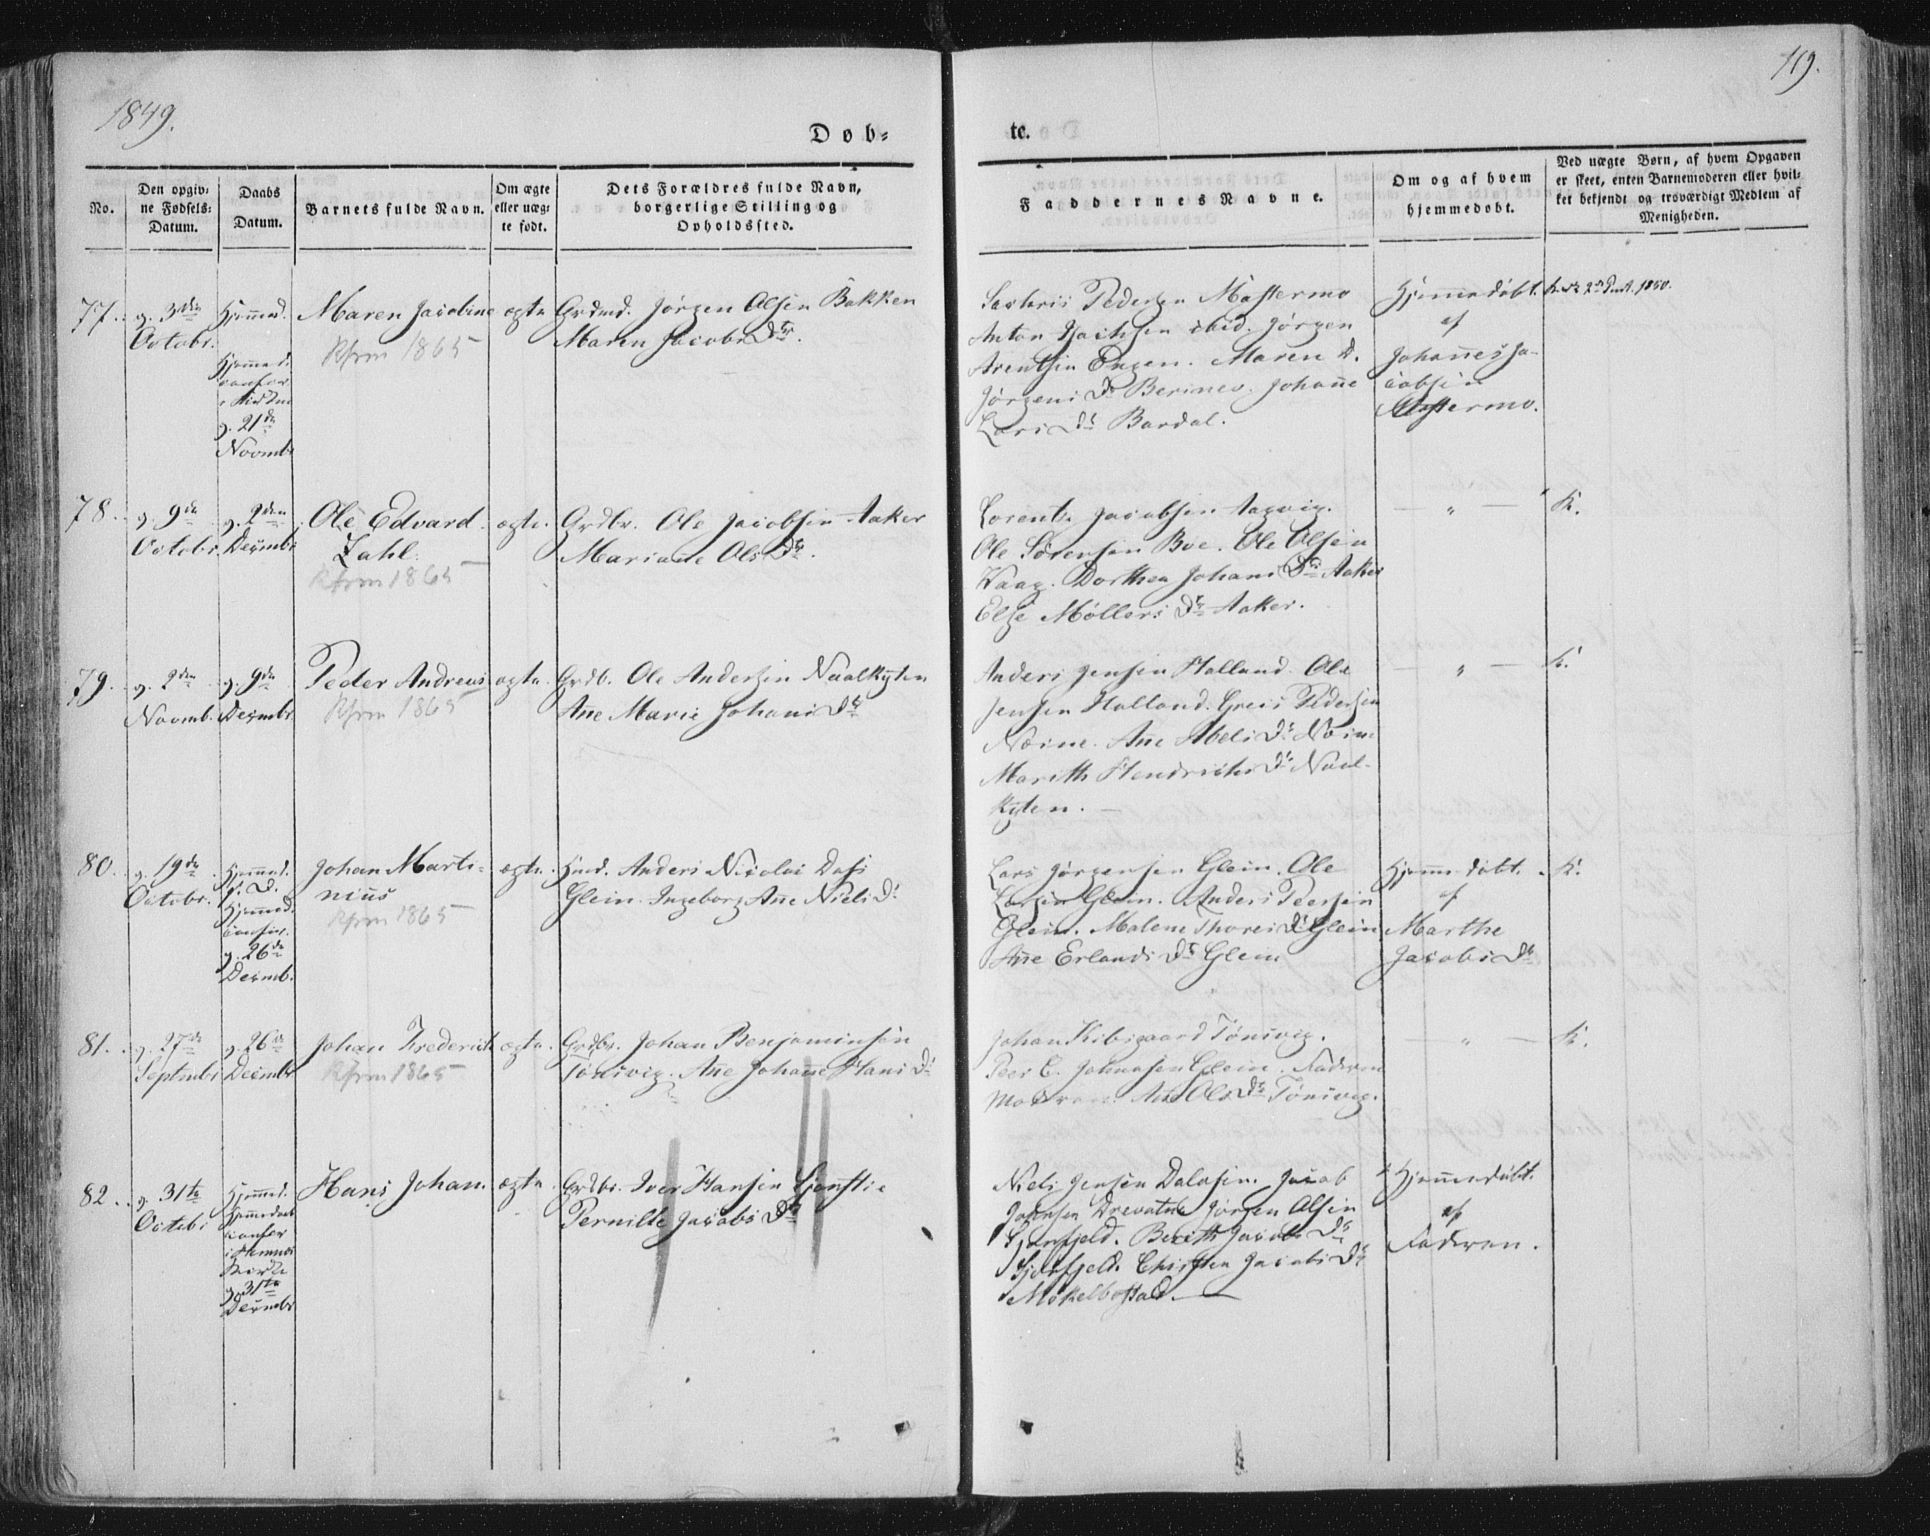 1849.
119.
Døb-
te.
No.
Den opgiv-
ne Fødsels-
Datum.
Daabs
Datum.
Barnets fulde Navn.
Om ægte
eller uæg-
te født.
Dets Forældres fulde Navn,
borgerlige Stilling og
Opholdssted.
Faddernes Navne.
Om og af hvem
hjemmedøbt.
Ved uægte Børn, af hvem Opgaven
er skeet, enten Barnemoderen eller hvil-
ket bekjendt og troværdigt Medlem af
Menigheden.
77.
3die
Octobr.
Hjemmed.
Hjemmed.
confer
21de
Novmbr
Maren Jacobine
Kfrm 1865
ægte
Grdmd. Jørgen Olsen Bakken
Maren Jacobs Dr.
Pedersen Mastermo
Anton Isachsen ibid. Jørgen
Arentsen Engen. Maren D.
Jørgens Dr Johanne
Lars Dr Bardal.
Hjemmedøbt
af
Johannes Ja-
cobsen
Mastermo.
1850.
78.
g. 9de
Octobr
g. 2den
Decmbr
Ole Edvard
Zahl.
Kfrm 1865
ægte.
Grdbr. Ole Jacobsen Aaker
Mariane Ols Dr.
Lorents Jacobsen
Ole Sørensen Boe. Ole Olsen
Vaag. Dorthea Johans Dr Aaker
Else Møllers Dr Aaker.
— " —
K.
79.
g. 2den
Novmb.
g. 9de
Decmbr.
Peder Andreas
Kfrm 1865
ægte.
Grdb. Ole Andersen Naalkyten
Ane Marie Johans Dr
Anders Jensen Holland. Ole
Jensen Holland. Greis Pedersen
Ane Abels Dr
Marith Hendrichs Dr Naal-
kyten. —
— " —
K.
80.
g. 19de
Octobr.
Hjemmed.
g. D.
Hjemmed.
confir.
g. 26de
Decmbr.
Johan Marti-
nius
Kfrm 1865
ægte.
Hmd. Anders Nicolai Dass
Glein. Ingeborg Ane Niels Dr
Lars Jørgensen Glein. Ole
Larsen Glein. Anders Peersen
Glein. Malene Thores Dr Glein
Ane Erlands Dr Glein
Hjemmedøbt.
af
Marthe
Jacobs Dr
K.
81.
g. 27de
Septmbr
g. 26de
Decmbr
Johan Frederich
Kfrm 1865
ægte.
Grdbr. Johan Benjaminsen
Tønsvig. Ane Johane Hans Dr
Johan Kibsgaard Tønsvig.
Peer C. Johnsen Glein. Faderen
Moderen. Ane Ols Dr Tønsvig.
— " —
K.
82.
g. 31te
Octobr
Hjemmed.
Hjemmedaab
confer
i Hamnæs
Kirke
g. 31te
Decmbr
Hans Johan.
ægte
Grdbr. Iver Hansen
Pernille Jacobs Dr
Niels Jensen Dalosen. Jacob
Johnsen Drevatne Jørgen Olsen
Berith Jacobs Dr
Chirsten Jacobs Dr
Mækelbostad. —
Hjemmedøbt.
af
Faderen.